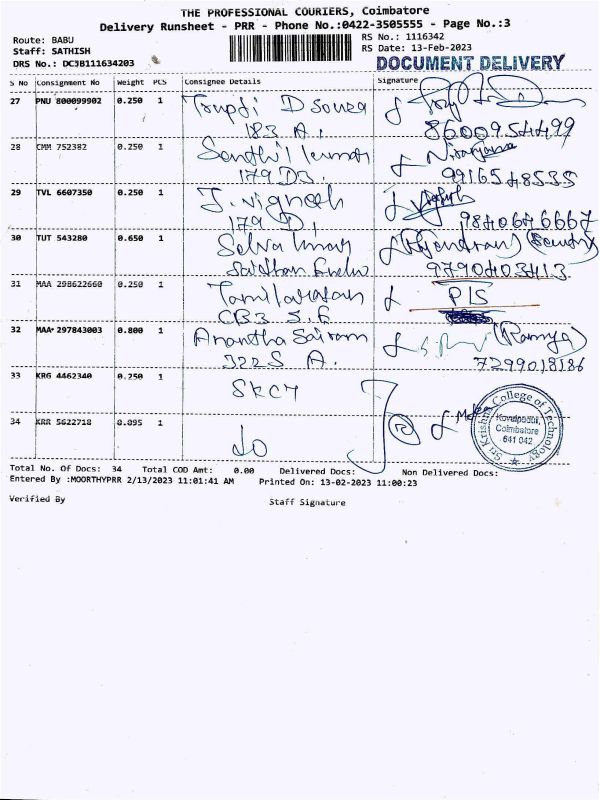 THE PROFESSIONAL COURIERS, Coimbatore
Delivery Runsheet - PRR - Phone No.:0422-3505555 - Page No.:3
Route: BABU
RS No.: 1116342
Staff: SATHISH
RS Date: 13-Feb-2023
DRS No.: DC3B111634203
DOCUMENT DELIVERY
S No Consignment No Weight PCS Consignee Details Signature
27 PNU 800099902 0.250 1 Trupti D Souza
183 A.
8600954499
28 CMM 752382 0.250 1 Senthil kumar Niranjana
179 D3. 9916548535
29 TVL 6607350 0.250 1 J. Vignesh Vignesh
179 D. 9840646667
30 TUT 543280 0.650 1 Selva kumar (Rajendran)
9790403413
31 MAA 298622660 0.250 1 Tamilarasan PIS
CB3 S.F
32 MAA 297843003 0.800 1 Anantha Sairam (Ramya)
322S A. 7299018186
33 KRG 4462340 0.250 1 SKCT
34 KRR 5622718 0.895 1 do
Sri Krishna College of Technology
Kovaipudur,
Coimbatore
641 042
Total No. Of Docs: 34 Total COD Amt: 0.00 Delivered Docs: Non Delivered Docs:
Entered By :MOORTHYPRR 2/13/2023 11:01:41 AM Printed On: 13-02-2023 11:00:23
Verified By Staff Signature